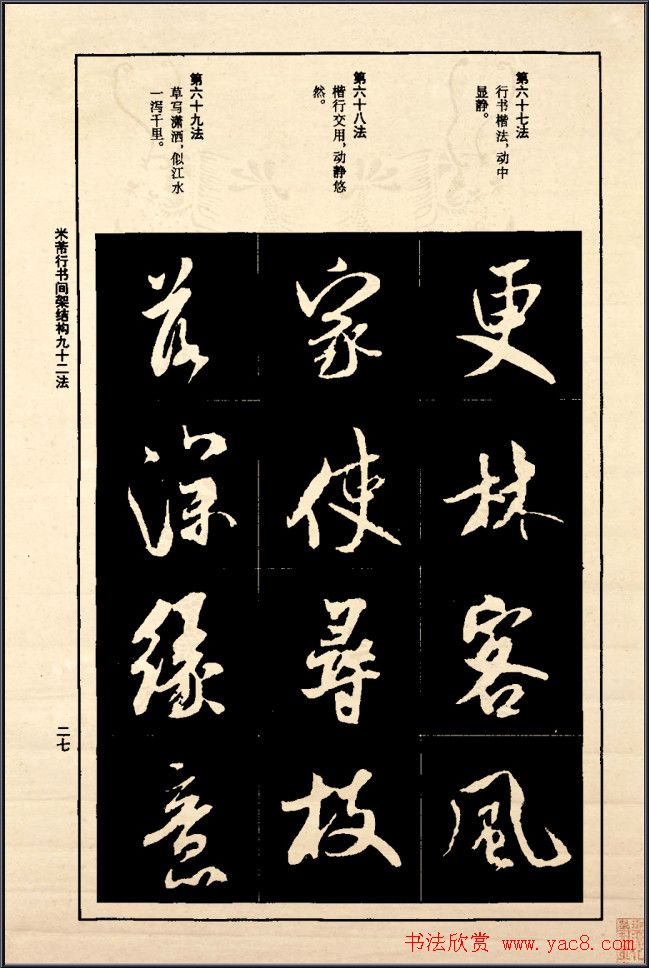 第六十七法
行书楷法,动中
显静。
第六十八法
楷行交用,动静悠
然。
第六十九法
草写潇洒,似江水
一泻千里。
更林客風
家使尋枝
落深緣意
米芾行书间架结构九十二法
二七
书法欣赏 www.yac8.com